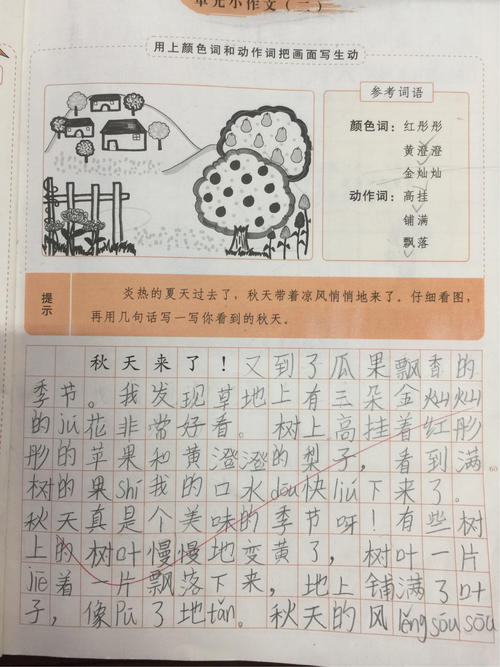 单元小作文（二）
用上颜色词和动作词把画面写生动
参考词语
颜色词：红彤彤
黄澄澄
金灿灿
动作词：高挂
铺满
飘落
提示
炎热的夏天过去了，秋天带着凉风悄悄地来了。仔细看图，
再用几句话写一写你看到的秋天。
秋天来了！又到了瓜果飘香的
季节。我发现草地上有三朵金灿灿
的jú花非常好看。树上高挂着红彤
彤的苹果和黄澄澄的梨子，看到满
树的果shí我的口水dōu快liú下来了。
60
秋天真是个美味的季节呀！有些树
上的树叶慢慢地变黄了，树叶一片
jiē着一片飘落下来，地上铺满了叶
子，像pū了地tǎn。秋天的风lěng sōu sōu